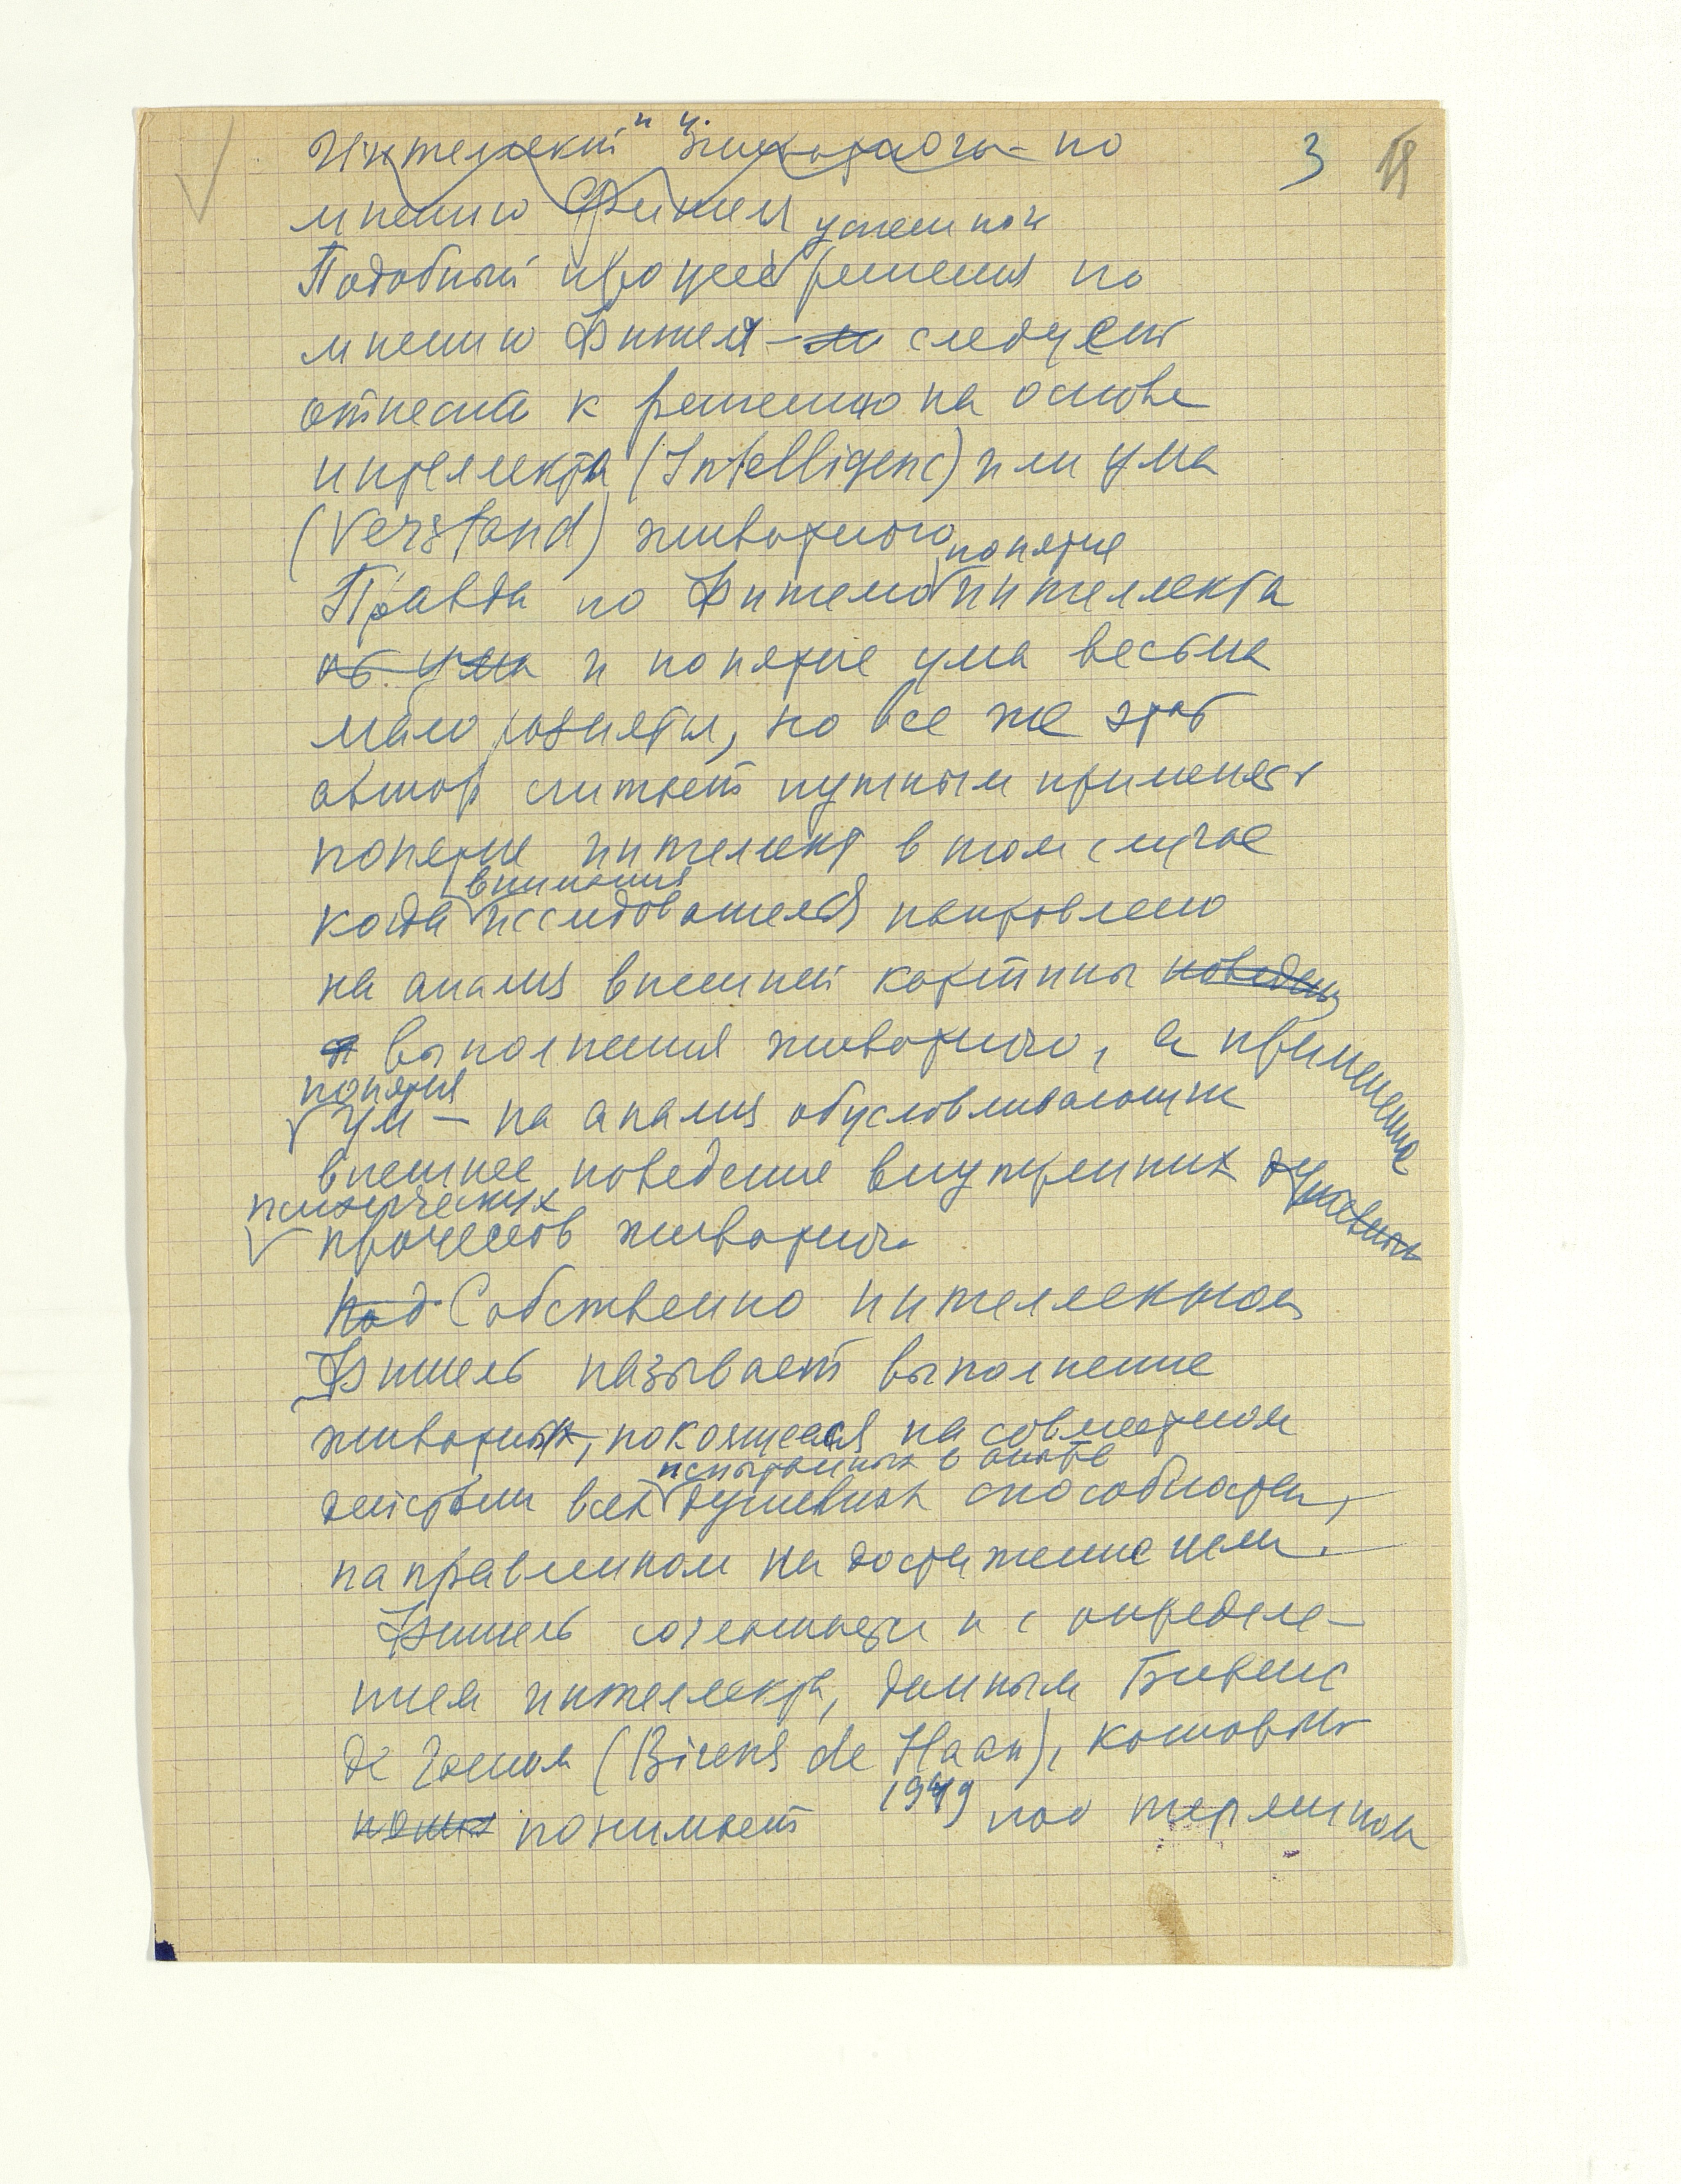 Интеллект" животного по
3
18
мнению Фишеля
успешной
Подобный процесс решения по
мнению Фишеля — следует
отнести к решению на основе
интеллекта (Intelligenc) или ума
(Verstand) животного
понятие
Правда по Фишелю интеллекта
об ума и понятие ума весьма
мало разнятся, но все же этот
автор считает нужным применять
понятие интеллект в том случае
внимание
когда исследователя направлено
на анализ внешней картины поведен
выполнения животного, а применение
понятия
Ум — на анализ обусловливающих
внешнее поведение внутренних душевных
психических
процессов животного
Под Собственно интеллектом
Фишель называет выполнение
животных, покоящееся на совместном
испытанных в опыте
действии всех душевных способностей,
направленном на достижение цели.
Фишель солидаризи и с определе-
нием интеллекта, данным Биренс
де Гааном (Birens de Haan), который
1949
понимает под термином